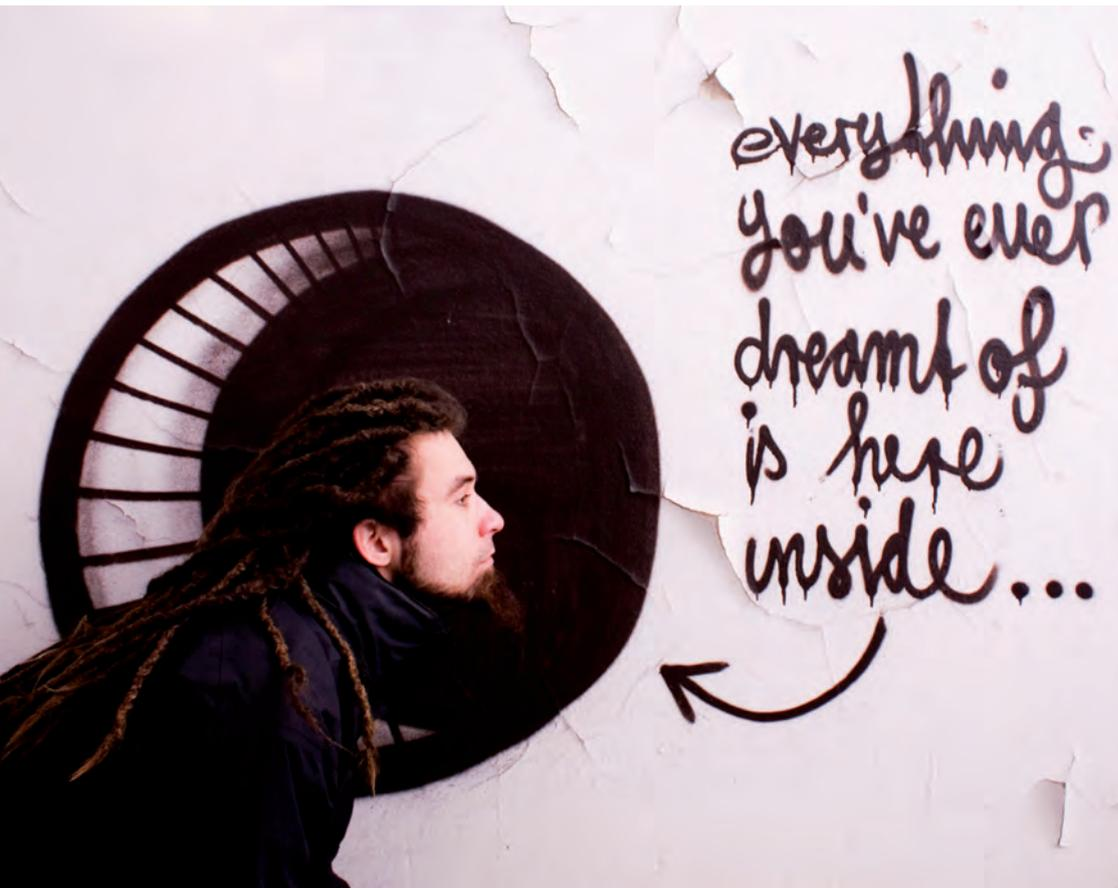 everything
you've ever
dreamt of
is here
inside...